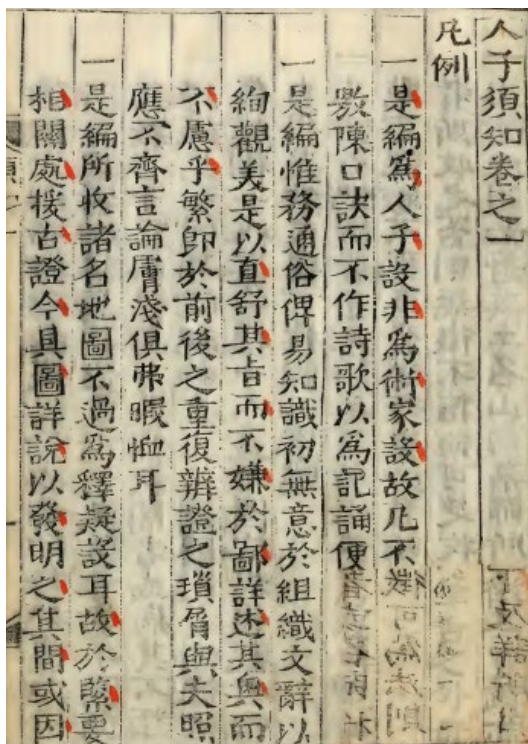 人子須知卷之一
凡例
一是編爲人子設非爲術家設故凡不
敷陳口訣而不作詩歌以爲記誦便
一是編惟務通俗俾易知識初無意於組織文辭以
絢觀美是以直舒其旨而不嫌於鄙詳述其輿而
不慮乎繁卽於前後之重復辨證之瑣屑與夫照
應不齊言論膚淺俱弗暇恤耳
一是編所收諸名地圖不過爲釋疑設耳故於緊要
相關處援古證今具圖詳說以發明之其間或因